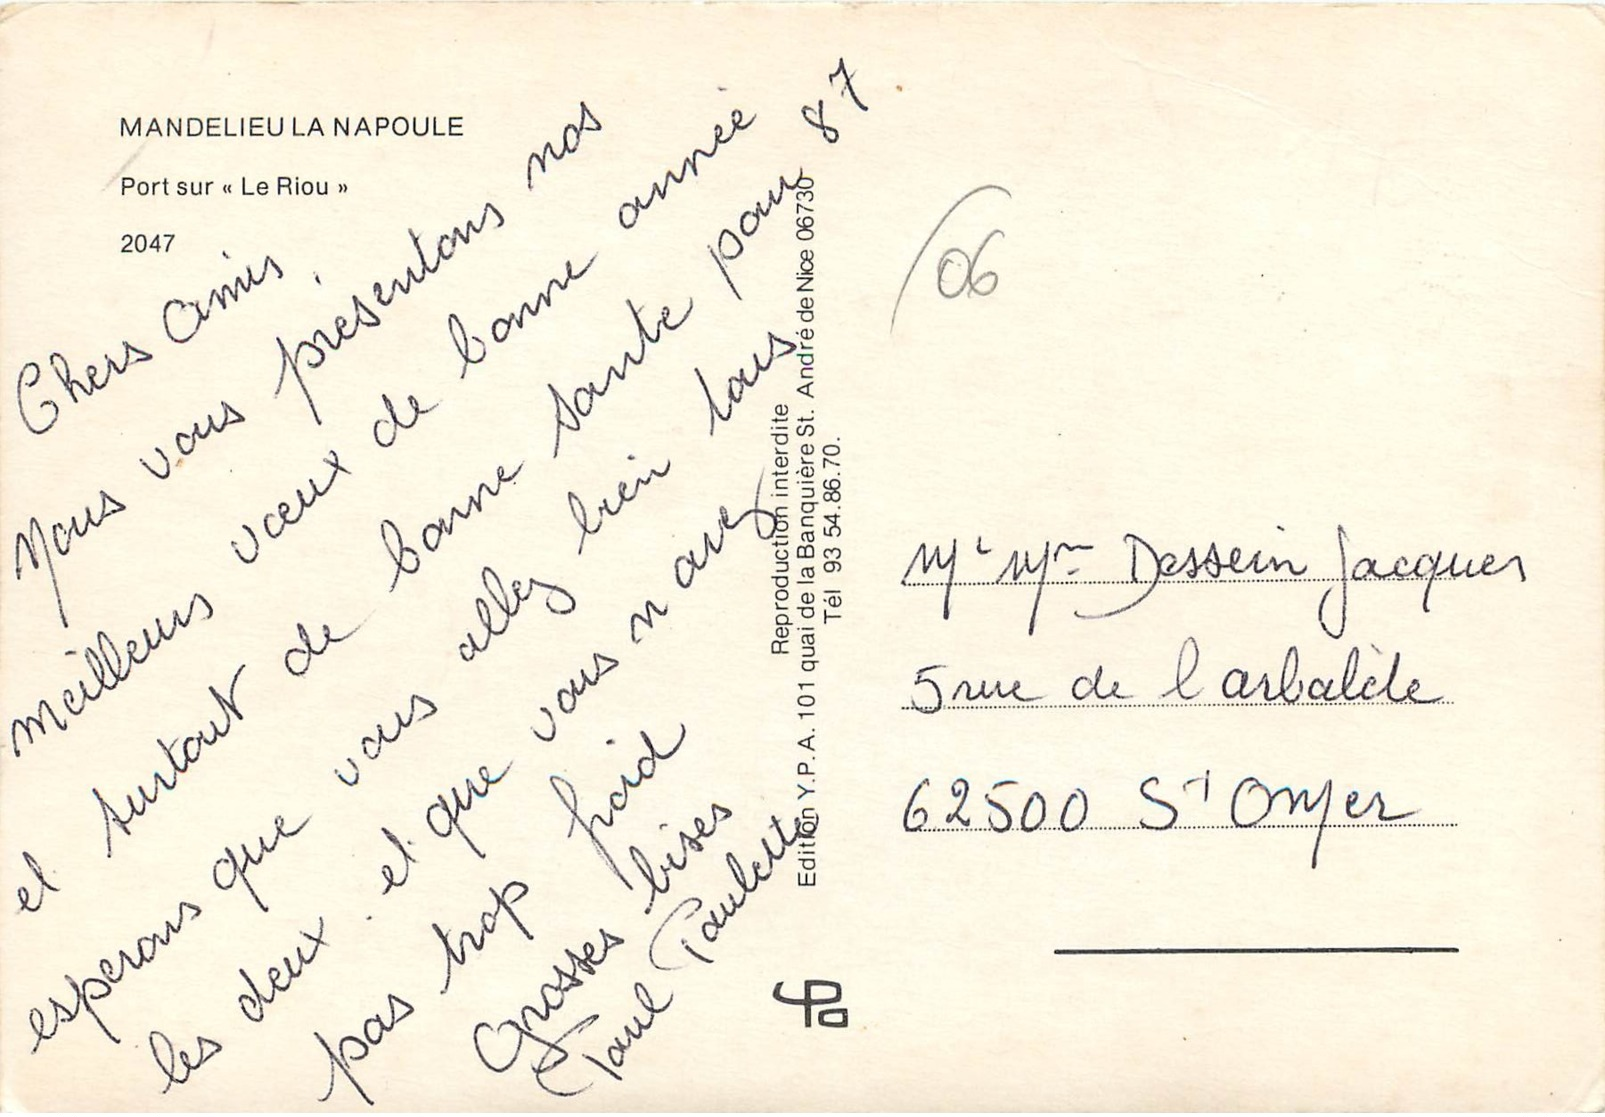 MANDELIEU LA NAPOULE
Port sur « Le Riou »
2047
Chers Amis,
Nous vous présentons nos
meilleurs vœux de bonne année
et surtout de bonne santé pour 87
esperons que vous allez bien tous
les deux. et que vous n'avez
pas trop froid
Grosses bises
Paul Paulette
Reproduction interdite
Edition Y.P.A. 101 quai de la Banquière St. André de Nice 06730
Tél 93 54.86.70.
06
Mr Mme Dessein Jacques
5 rue de l arbalète
62500 St Omer